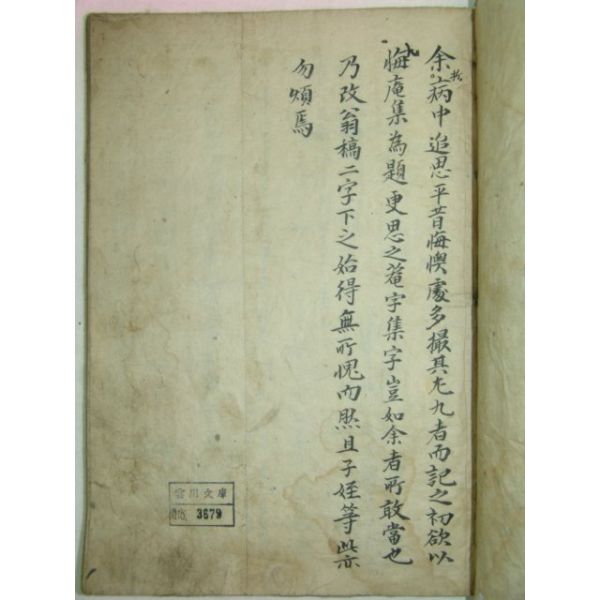 余於病中追思平昔悔懊處多撮其尤九者而記之初欲以
九悔庵集為題更思之菴字集字豈如余者所敢當也
乃改翁稿二字下之始得無所愧而然且子姪等此亦
勿煩焉
雲川文庫
3679